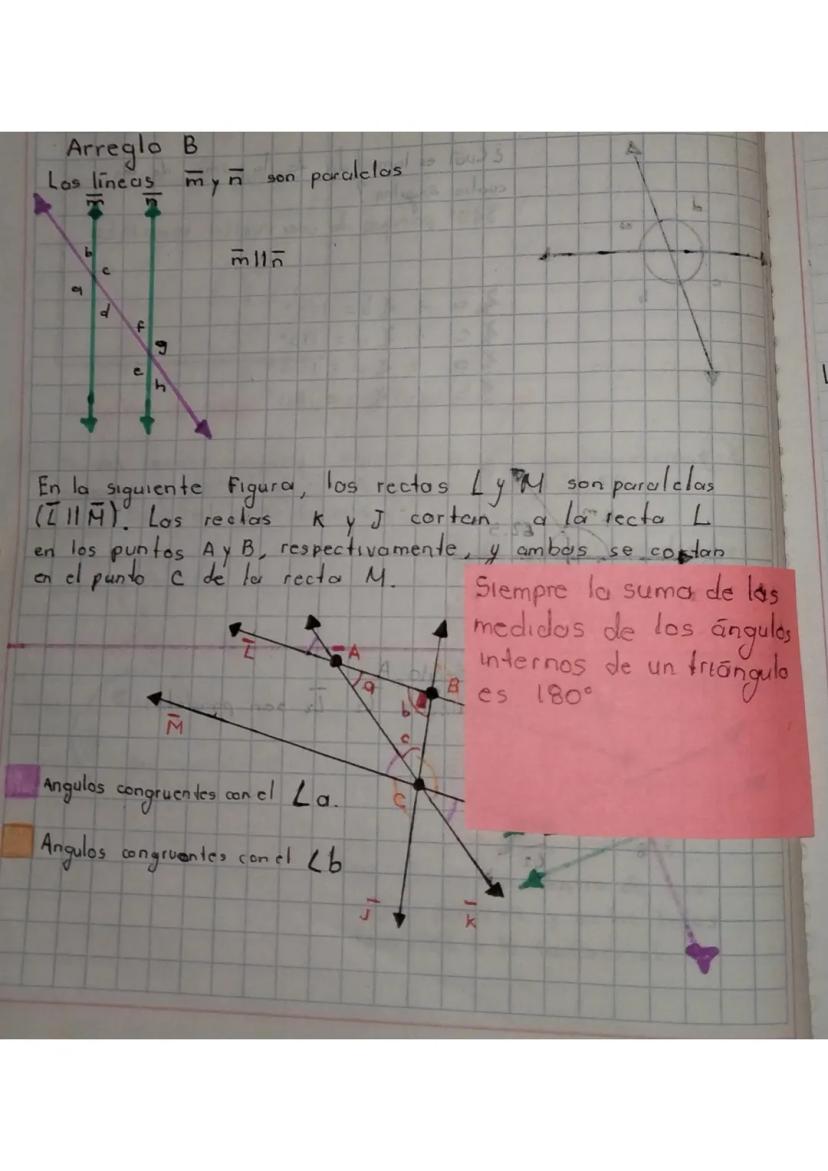 Arreglo B
Las líneas m̅ y n̅ son paralelas
m̅ n̅
b
c
a
d
f
g
e
h
m̅ || n̅
b
a
c
En la siguiente figura, las rectas L y M son paralelas
(L̅ || M̅). Las rectas K y J cortan a la recta L
en los puntos A y B, respectivamente, y ambas se cortan
en el punto C de la recta M.
Siempre la suma de las
medidas de los ángulos
internos de un triángulo
es 180°
L̅
A
a
B
b
M̅
c
C
Angulos congruentes con el ∠a.
Angulos congruentes con el ∠b
J̅
K̅